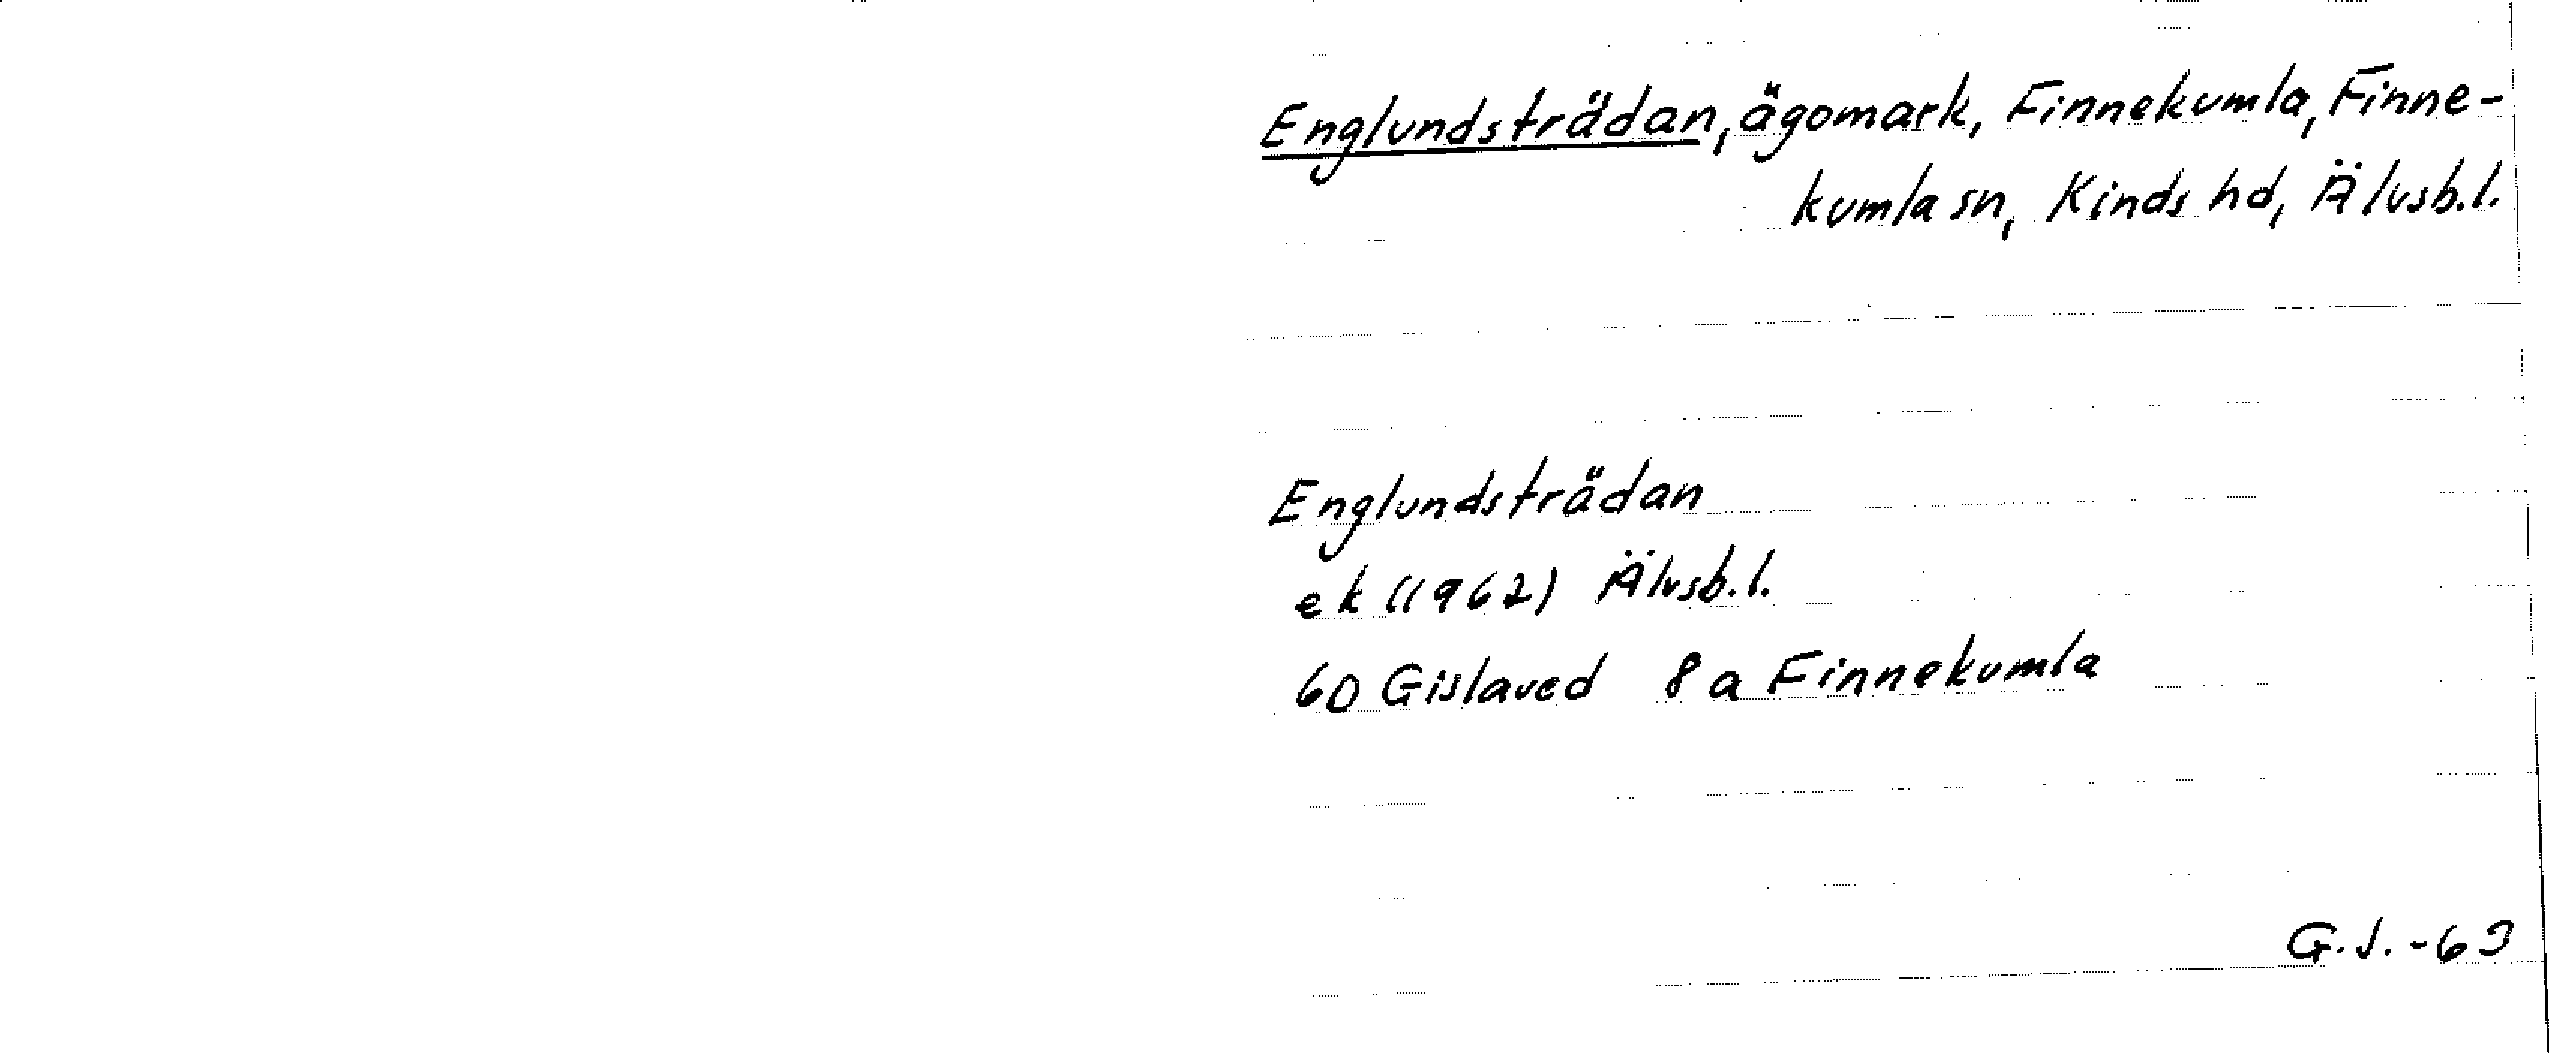 Englundsträdan, ägomark, Finnekumla, Finne-
kumla sn, Kinds hd, Älvsb.l.
Englundsträdan
ek (1962) Älvsb.l.
60 Gislaved 8a Finnekumla
G.J.-63